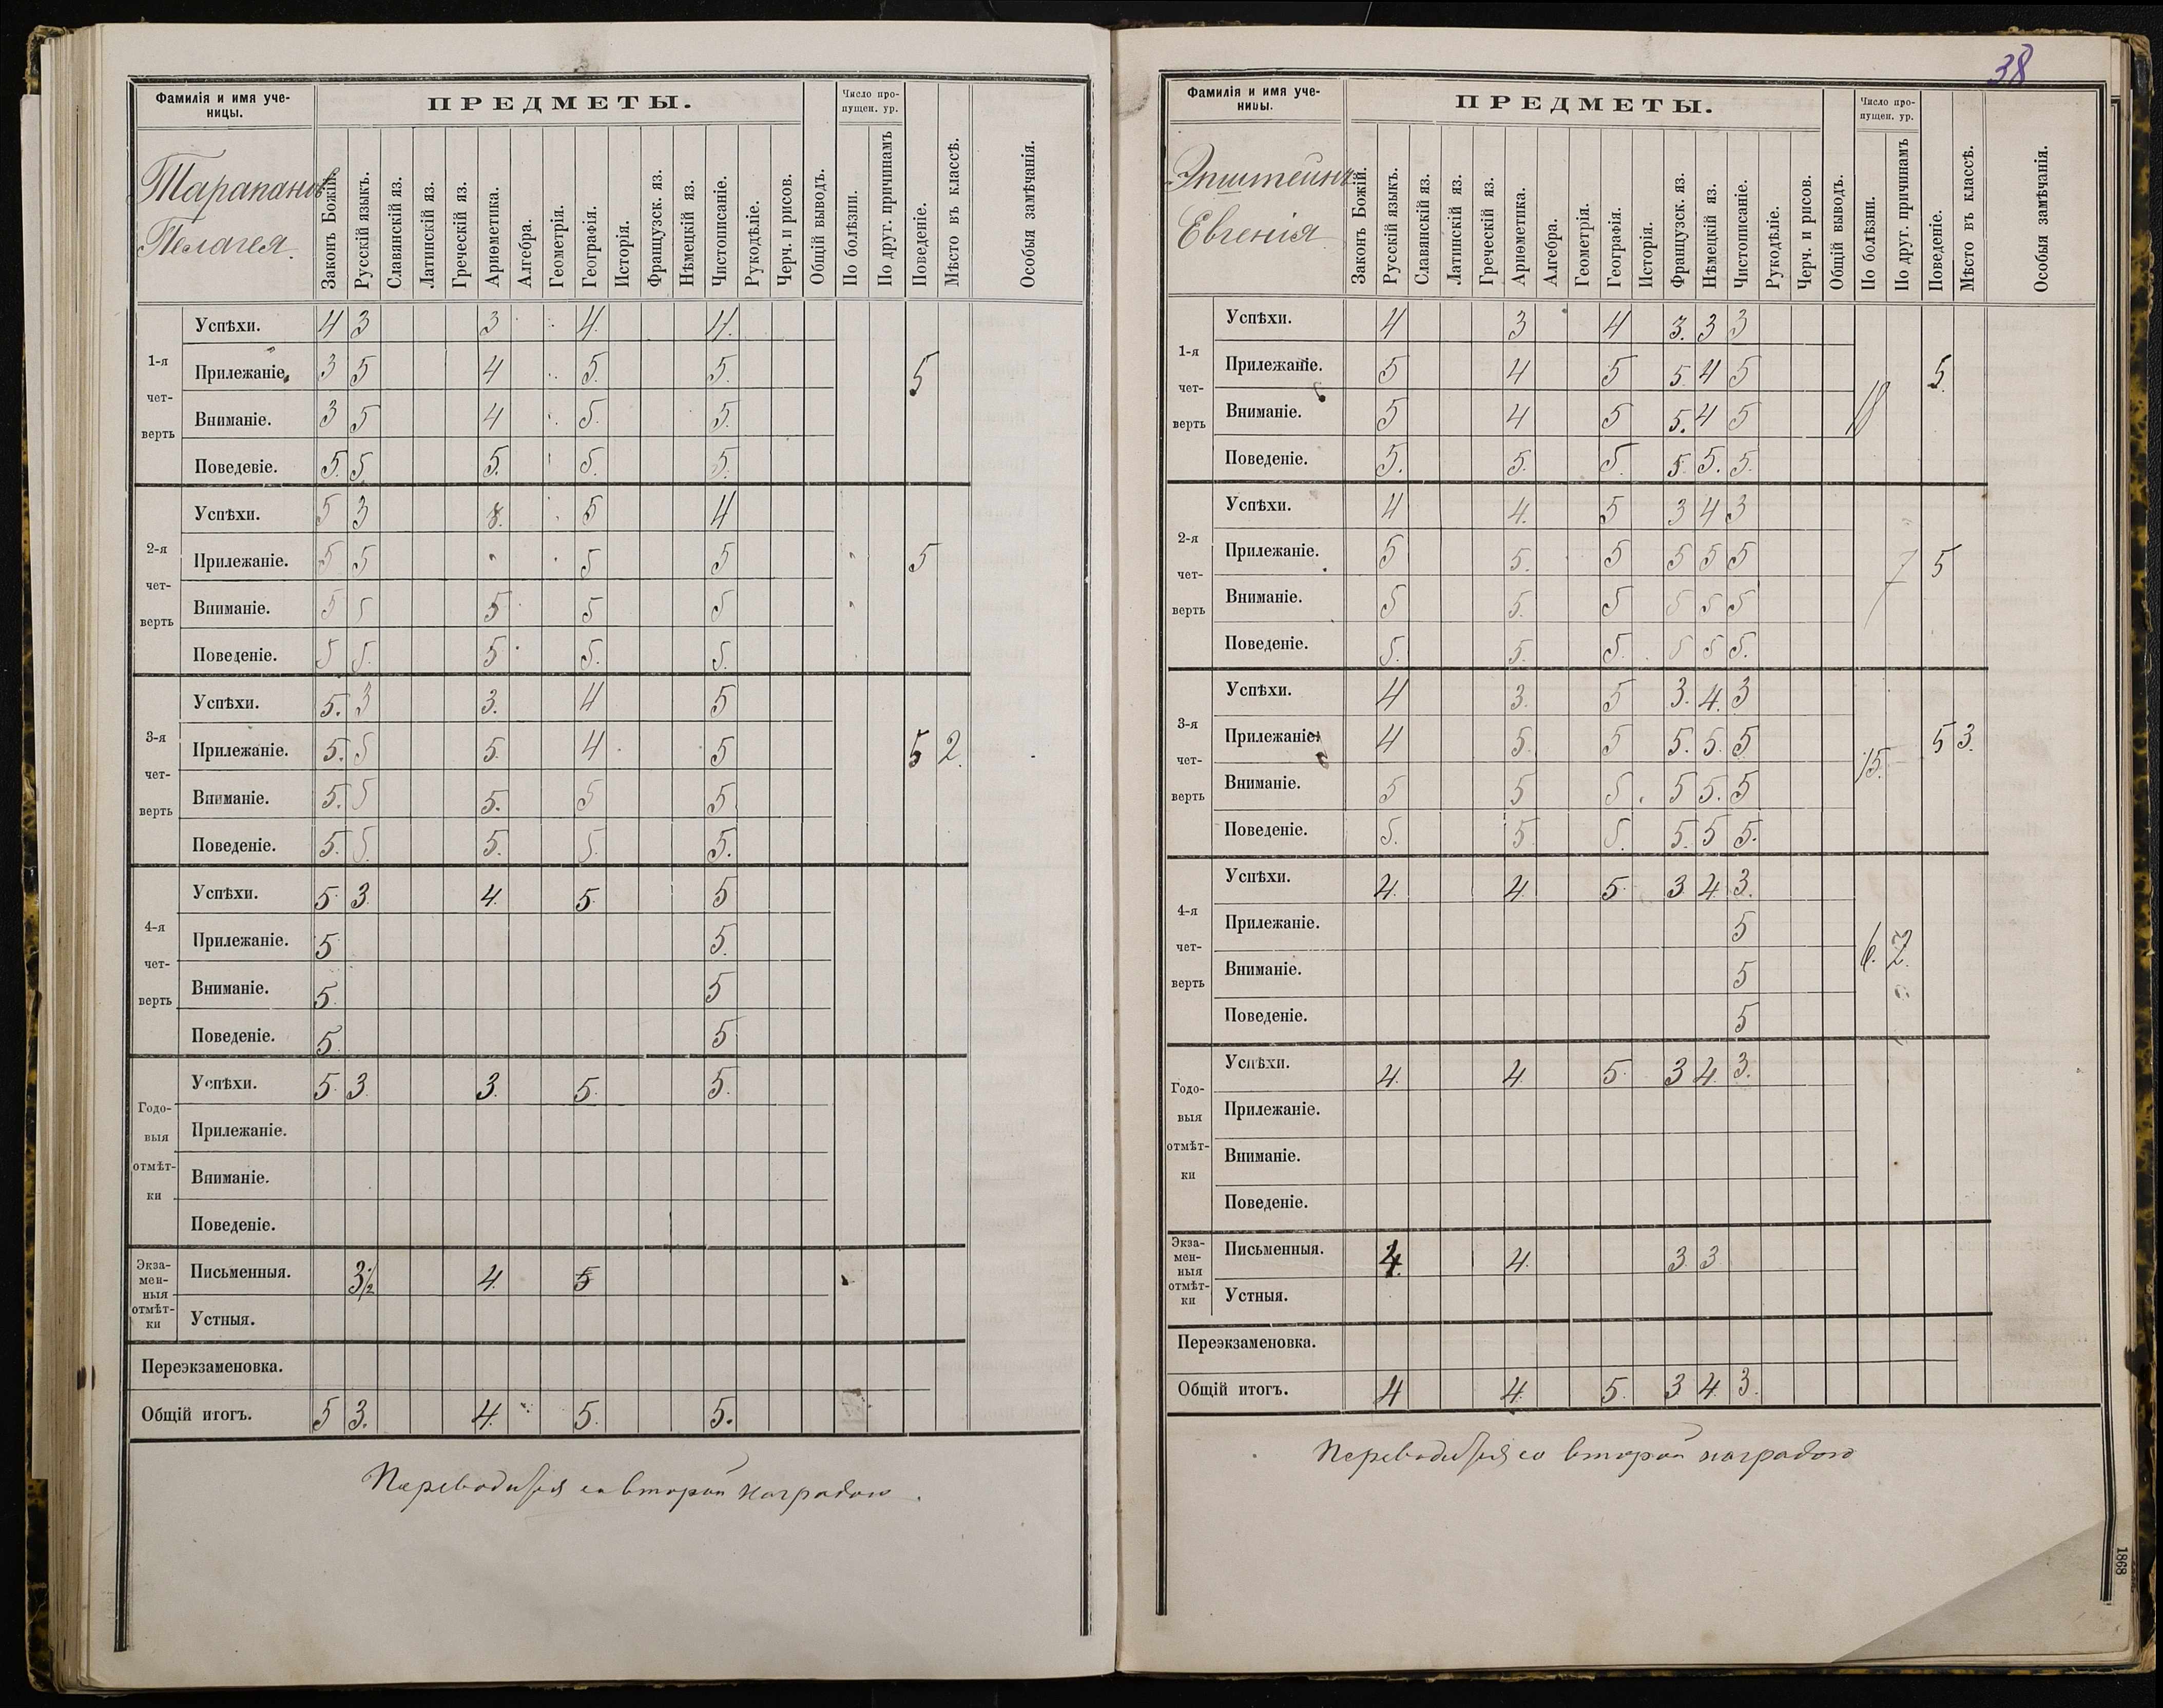 38
Фамилія и имя уче-
ницы.
ПРЕДМЕТЫ.
Число про-
пущен. ур.
Тарапанов
Пелагея.
Законъ Божій.
Русскій языкъ.
Славянскій яз.
Латинскій яз.
Греческій яз.
Ариѳметика.
Алгебра.
Геометрія.
Географія.
Исторія.
Французск. яз.
Нѣмецкій яз.
Чистописаніе.
Рукодѣліе.
Черч. и рисов.
Общій выводъ.
По болѣзни.
По друг. причинамъ
Поведеніе.
Мѣсто въ классѣ.
Особыя замѣчанія.
1-я чет- верть
Успѣхи. 4 3 3 4. 4.
Прилежаніе. 3 5 4 5. 5. 5
Вниманіе. 3 5 4 5. 5.
Поведевіе. 5. 5. 5. 5. 5.
2-я чет- верть
Успѣхи. 5 3 5 4
Прилежаніе. 5 5 5 5 5
Вниманіе. 5 5 5 5 5
Поведеніе. 5 5. 5 5. 5.
3-я чет- верть
Успѣхи. 5. 3 3. 4 5
Прилежаніе. 5. 5 5. 4 5 5 2.
Вниманіе. 5. 5 5. 5 5.
Поведеніе. 5. 5. 5. 5. 5.
4-я чет- верть
Успѣхи. 5. 3. 4. 5. 5
Прилежаніе. 5 5.
Вниманіе. 5. 5
Поведеніе. 5. 5
Годо- выя отмѣт- ки
Успѣхи. 5. 3. 3. 5. 5.
Прилежаніе.
Вниманіе.
Поведеніе.
Экза- мен- ныя отмѣт- ки
Письменныя. 3½ 4. 5
Устныя.
Переэкзаменовка.
Общій итогъ. 5 3. 4. 5. 5.
Переводится со второй наградою.
Фамилія и имя уче-
ницы.
ПРЕДМЕТЫ.
Число про-
пущен. ур.
Эпштейнъ
Евгенія
Законъ Божій.
Русскій языкъ.
Славянскій яз.
Латинскій яз.
Греческій яз.
Ариѳметика.
Алгебра.
Геометрія.
Географія.
Исторія.
Французск. яз.
Нѣмецкій яз.
Чистописаніе.
Рукодѣліе.
Черч. и рисов.
Общій выводъ.
По болѣзни.
По друг. причинамъ
Поведеніе.
Мѣсто въ классѣ.
Особыя замѣчанія.
1-я чет- верть
Успѣхи. 4 3 4 3. 3 3
Прилежаніе. 5 4 5 5. 4 5 18 5.
Вниманіе. 5 4 5 5. 4 5
Поведеніе. 5. 5. 5. 5. 5. 5.
2-я чет- верть
Успѣхи. 4 4. 5 3 4 3
Прилежаніе. 5 5. 5 5 5 5 7 5
Вниманіе. 5 5. 5 5 5 5
Поведеніе. 5. 5. 5. 5 5 5.
3-я чет- верть
Успѣхи. 4 3. 5 3. 4. 3
Прилежаніе. 4 5. 5 5. 5. 5 15. 5 3.
Вниманіе. 5 5 5. 5 5. 5
Поведеніе. 5. 5 5. 5. 5 5.
4-я чет- верть
Успѣхи. 4. 4. 5. 3 4 3.
Прилежаніе. 5 6. 2.
Вниманіе. 5
Поведеніе. 5
Годо- выя отмѣт- ки
Успѣхи. 4. 4. 5. 3 4. 3.
Прилежаніе.
Вниманіе.
Поведеніе.
Экза- мен- ныя отмѣт- ки
Письменныя. 4. 4. 3. 3
Устныя.
Переэкзаменовка.
Общій итогъ. 4 4. 5. 3 4. 3.
Переводится со второй наградою
1868